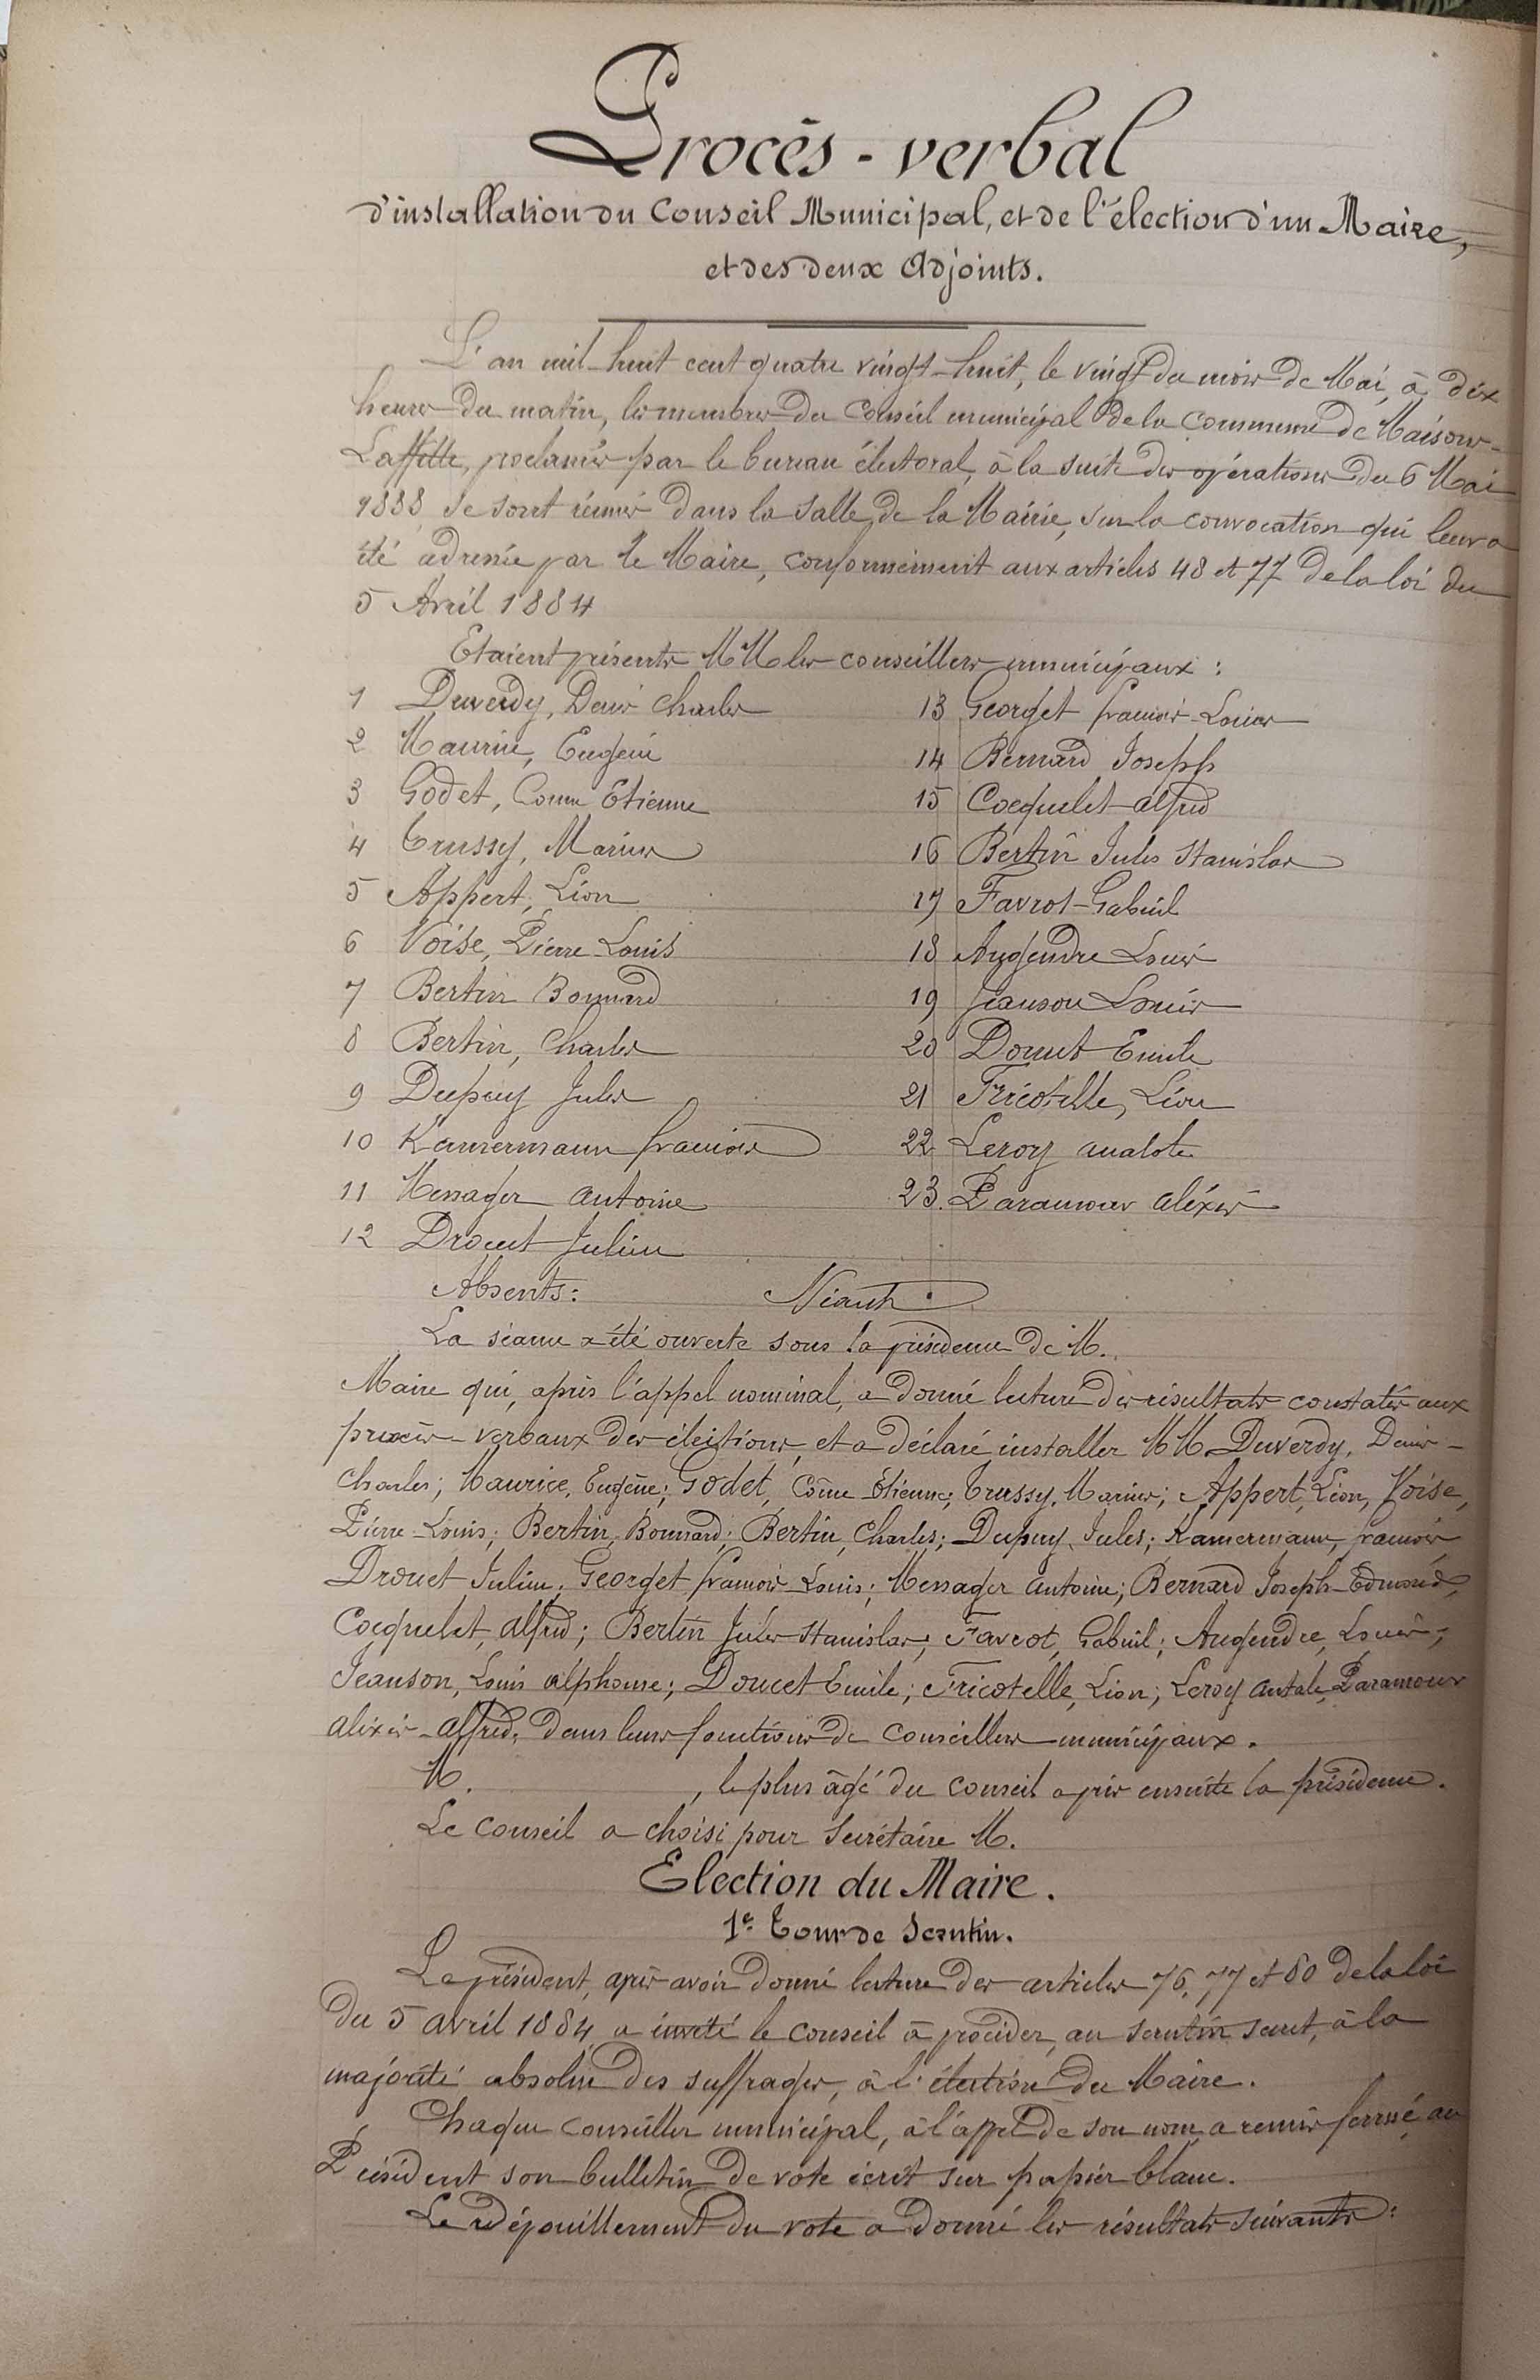 Procès-verbal
d'installation du Conseil Municipal, et de l'élection d'un Maire,
et des deux Adjoints.
L'an mil-huit cent quatre vingt-huit, le vingt du mois de Mai, à dix
heures du matin, les membres du Conseil municipal de la Commune de Maisons-
Laffitte, proclamés par le bureau électoral, à la suite des opérations du 6 Mai
1888 se sont réunis dans la salle de la Mairie, sur la convocation qui leur a
été adressée par le Maire, conformément aux articles 48 et 77 de la loi du
5 Avril 1884
Etaient présents MM les conseillers municipaux :
1 Duverdy, Denis Charles
2 Maurice, Eugène
3 Godet, Come Etienne
4 Trussy, Marius
5 Appert, Léon
6 Voise, Pierre Louis
7 Bertin Bonnard
8 Bertin, Charles
9 Dupuy Jules
10 Kamermann françois
11 Messager Antoine
12 Drouet Julien
13 Georget françois-Louis
14 Bernard Joseph
15 Cocquelet alfred
16 Bertin Jules Stanislas
17 Favrot-Gabriel
18 Augendre Louis
19 Jeanson Louis
20 Doucet Emile
21 Tricotelle, Léon
22 Leroy anatole
23. Paramour aléxis
Absents : Néant
La séance a été ouverte sous la présidence de M.
Maire qui, après l'appel nominal, a donné lecture des résultats constatés aux
procès-verbaux des élections, et a déclaré installer MM. Duverdy, Denis-
Charles; Maurice, Eugène; Godet, Côme-Etienne; Trussy, Marius; Appert, Léon, Voise,
Pierre-Louis; Bertin, Bonnard; Bertin, Charles; Dupuy, Jules; Kamermann, françois
Drouet Julien; Georget françois-Louis; Messager Antoine; Bernard Joseph-Edmond,
Cocquelet, Alfred; Bertin Jules Stanislas; Favrot, Gabriel; Augendre, Louis;
Jeanson, Louis Alphonse; Doucet Emile; Tricotelle, Léon; Leroy Anatole, Paramour
alixis-Alfred, dans leurs fonctions de conseillers municipaux.
M. , le plus âgé du conseil a pris ensuite la présidence.
Le Conseil a choisi pour Secrétaire M.
Election du Maire.
1er Tour de Scrutin.
Le président, après avoir donné lecture des articles 76, 77 et 80 de la loi
du 5 avril 1884 a invité le conseil à procéder, au scrutin secret, à la
majorité absolue des suffrages, à l'élection du Maire.
Chaque conseiller municipal, à l'appel de son nom, a remis fermé, au
Président son bulletin de vote écrit sur papier blanc.
Le dépouillement du vote a donné les résultats suivants :